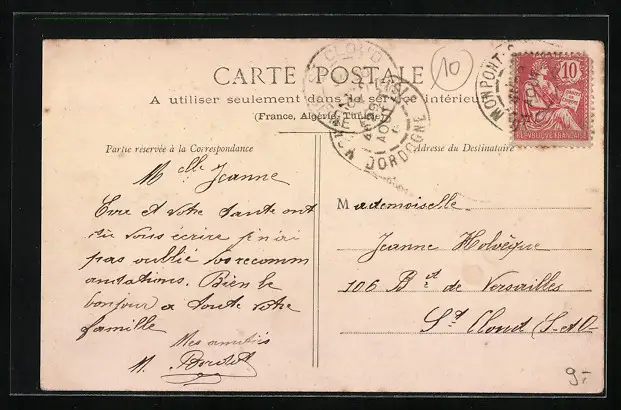 CARTE POSTALE
A utiliser seulement dans le service intérieur
(France, Algérie, Tunisie)
Partie réservée à la Correspondance
Adresse du Destinataire
10
10
RÉPUBLIQUE FRANÇAISE
MONPONT
DORDOGNE
AOUT
CLOUD
Melle Jeanne
et votre tante ont
dû vous écrire je n'ai
pas oublié vos recomm
andations. Bien le
bonjour à toute votre
famille
Mes amitiés
M.
Mademoiselle
Jeanne Holvèque
106 Bd de Versailles
St Cloud (S-&-O-
9.-